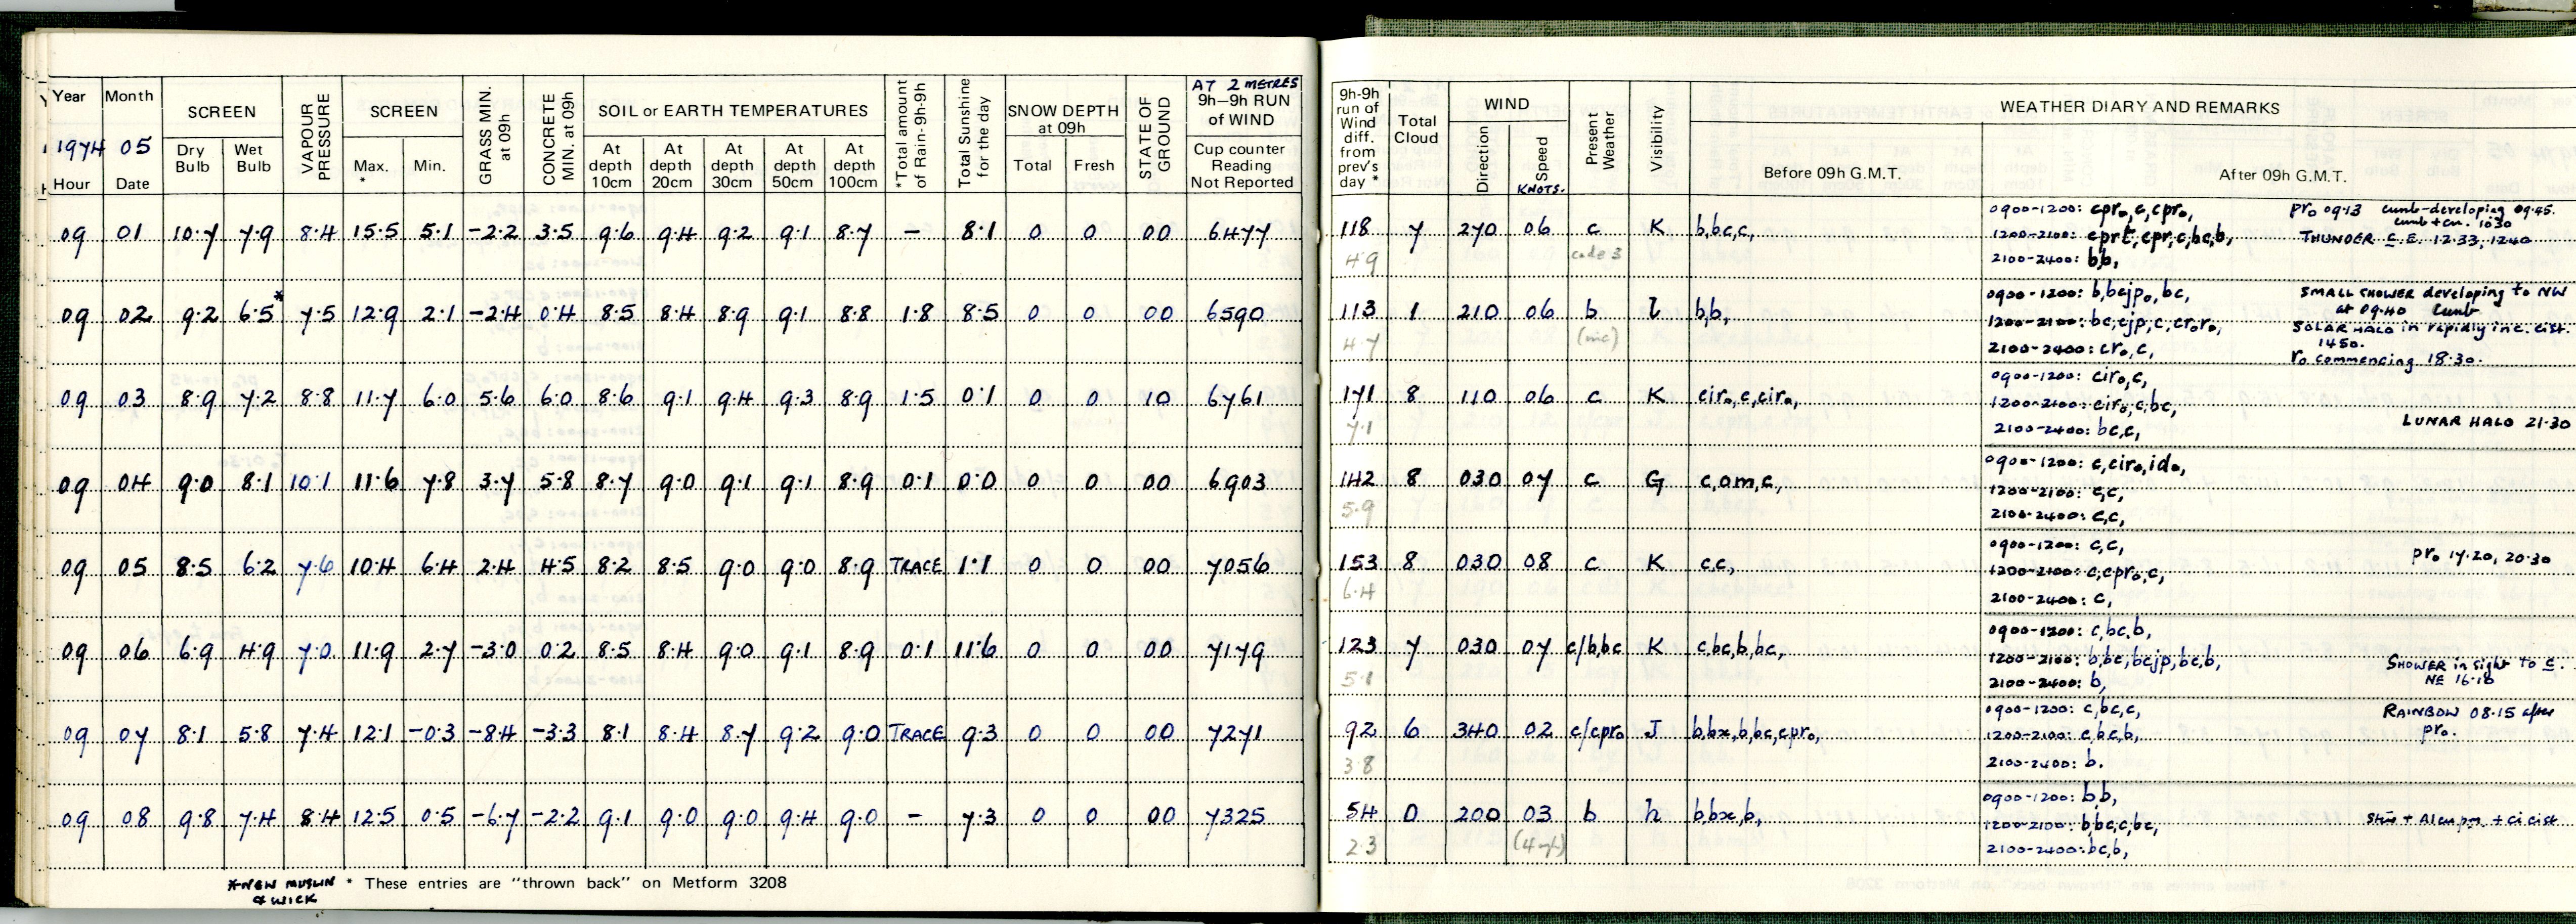 Year Month SCREEN VAPOUR PRESSURE SCREEN GRASS MIN. at 09h CONCRETE MIN. at 09h SOIL or EARTH TEMPERATURES *Total amount of Rain-9h-9h Total Sunshine for the day SNOW DEPTH at 09h STATE OF GROUND AT 2 METRES 9h–9h RUN of WIND
1974 05 Dry Bulb Wet Bulb Max. * Min. At depth 10cm At depth 20cm At depth 30cm At depth 50cm At depth 100cm Total Fresh Cup counter Reading Not Reported
Hour Date
09 01 10.7 7.9 8.4 15.5 5.1 -2.2 3.5 9.6 9.4 9.2 9.1 8.7 – 8.1 0 0 00 6477
09 02 9.2 6.5* 7.5 12.9 2.1 -2.4 0.4 8.5 8.4 8.9 9.1 8.8 1.8 8.5 0 0 00 6590
09 03 8.9 7.2 8.8 11.7 6.0 5.6 6.0 8.6 9.1 9.4 9.3 8.9 1.5 0.1 0 0 10 6761
09 04 9.0 8.1 10.1 11.6 7.8 3.7 5.8 8.7 9.0 9.1 9.1 8.9 0.1 0.0 0 0 00 6903
09 05 8.5 6.2 7.6 10.4 6.4 2.4 4.5 8.2 8.5 9.0 9.0 8.9 TRACE 1.1 0 0 00 7056
09 06 6.9 4.9 7.0 11.9 2.7 -3.0 0.2 8.5 8.4 9.0 9.1 8.9 0.1 11.6 0 0 00 7179
09 07 8.1 5.8 7.4 12.1 -0.3 -8.4 -3.3 8.1 8.4 8.7 9.2 9.0 TRACE 9.3 0 0 00 7271
09 08 9.8 7.4 8.4 12.5 0.5 -6.7 -2.2 9.1 9.0 9.0 9.4 9.0 – 7.3 0 0 00 7325
*NEW MUSLIN & WICK
* These entries are "thrown back" on Metform 3208
9h-9h run of Wind diff. from prev's day * Total Cloud WIND Present Weather Visibility WEATHER DIARY AND REMARKS
Direction Speed KNOTS. Before 09h G.M.T. After 09h G.M.T.
118 7 270 06 c K b,bc,c,
4.9 code 3
0900-1200: cpr₀,c,cpr₀, pr₀ 09.13 cumb-developing 09.45.
cumb+cu. 1030
1200-2100: cprt,cpr,c,bc,b, THUNDER E.E. 12.33, 1240
2100-2400: b,b,
113 1 210 06 b l b,b,
4.7 (mc)
0900-1200: b,bcjp₀,bc, SMALL SHOWER developing to NW
at 09.40 Cumb
1200-2100: bc,cjp,c,cr₀r₀, SOLAR HALO in rapidly inc. cist.
1450.
2100-2400: cr₀,c, r₀ commencing 18.30.
171 8 110 06 c K cir₀,c,cir₀,
7.1
0900-1200: cir₀,c,
1200-2100: cir₀,c,bc,
2100-2400: bc,c, LUNAR HALO 21.30
142 8 030 07 c G c,om,c,
5.9
0900-1200: c,cir₀,id₀,
1200-2100: c,c,
2100-2400: c,c,
153 8 030 08 c K c,c,
6.4
0900-1200: c,c, pr₀ 17.20, 20.30
1200-2100: c,cpr₀,c,
2100-2400: c,
123 7 030 07 c/b,bc K c,bc,b,bc,
5.1
0900-1200: c,bc,b,
1200-2100: b,bc,bcjp,bc,b, SHOWER in sight to E.
NE 16.18
2100-2400: b,
92 6 340 02 c/cpr₀ J b,bx,b,bc,cpr₀,
3.8
0900-1200: c,bc,c, RAINBOW 08.15 after
1200-2100: c,bc,b, pr₀.
2100-2400: b.
54 0 200 03 b h b,bx,b,
2.3
0900-1200: b,b,
1200-2100: b,bc,c,bc, + ci cist
2100-2400: bc,b,